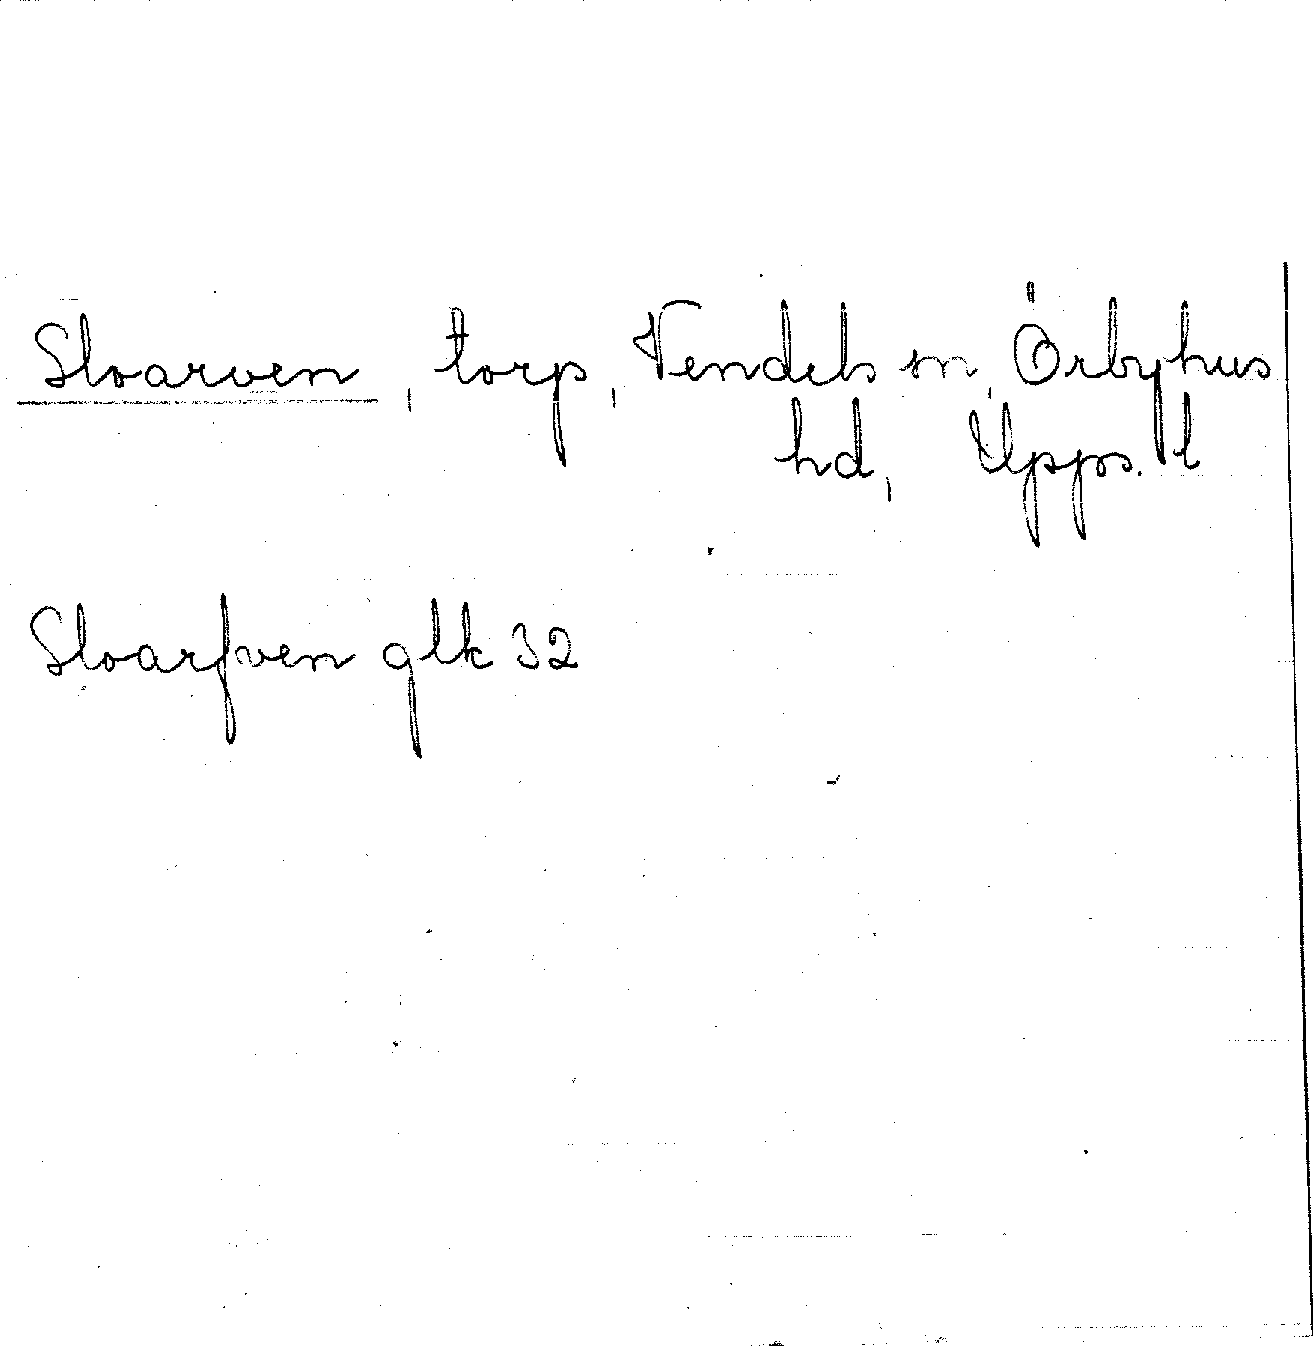 Sloarven, torp, Vendels sn, Örbyhus
hd, Upps. l
Sloarfven glk 32